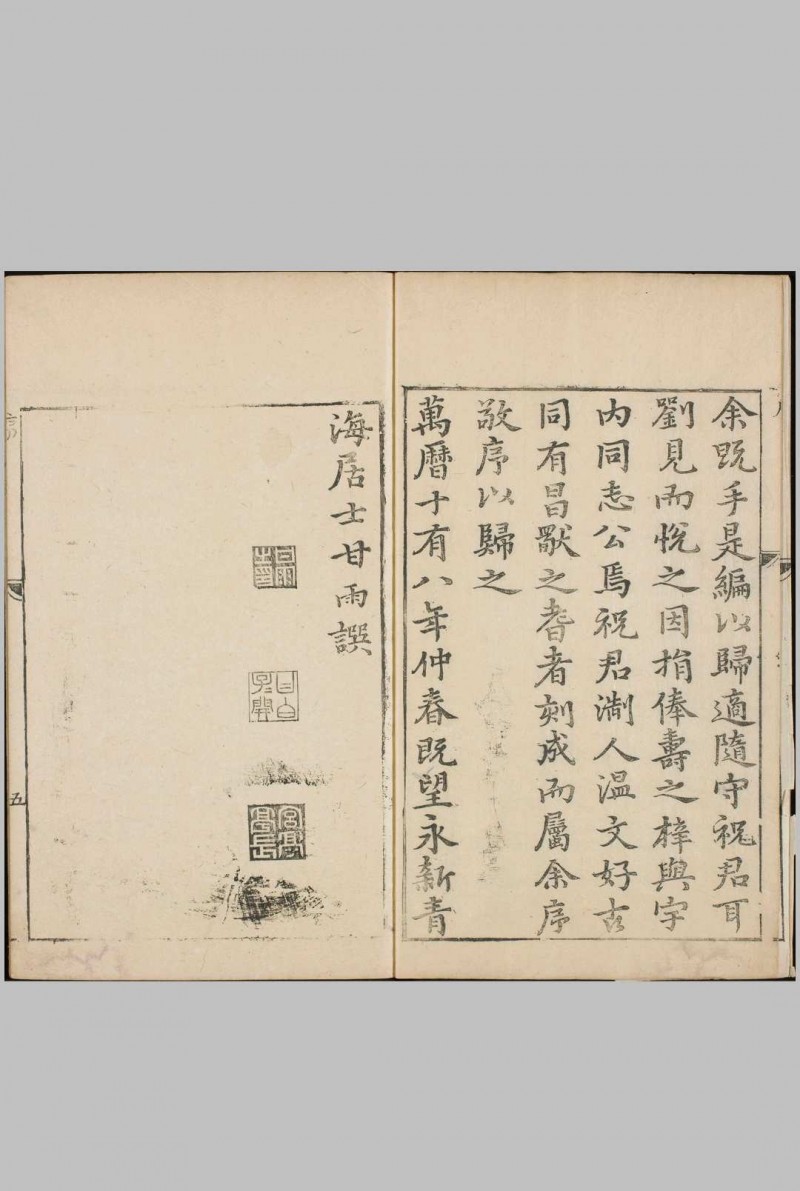 余既手是編以歸適隨守祝君耳
劉見而悅之因捐俸壽之梓與宇
內同志公焉祝君淛人溫文好古
同有昌歜之耆者刻成而屬余序
敬序以歸之
萬曆十有八年仲春既望永新青
海居士甘雨譔
五